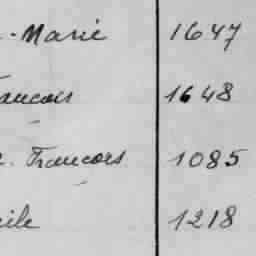 -Marie 1647
rancois 1648
. Francois 1085
cile 1218